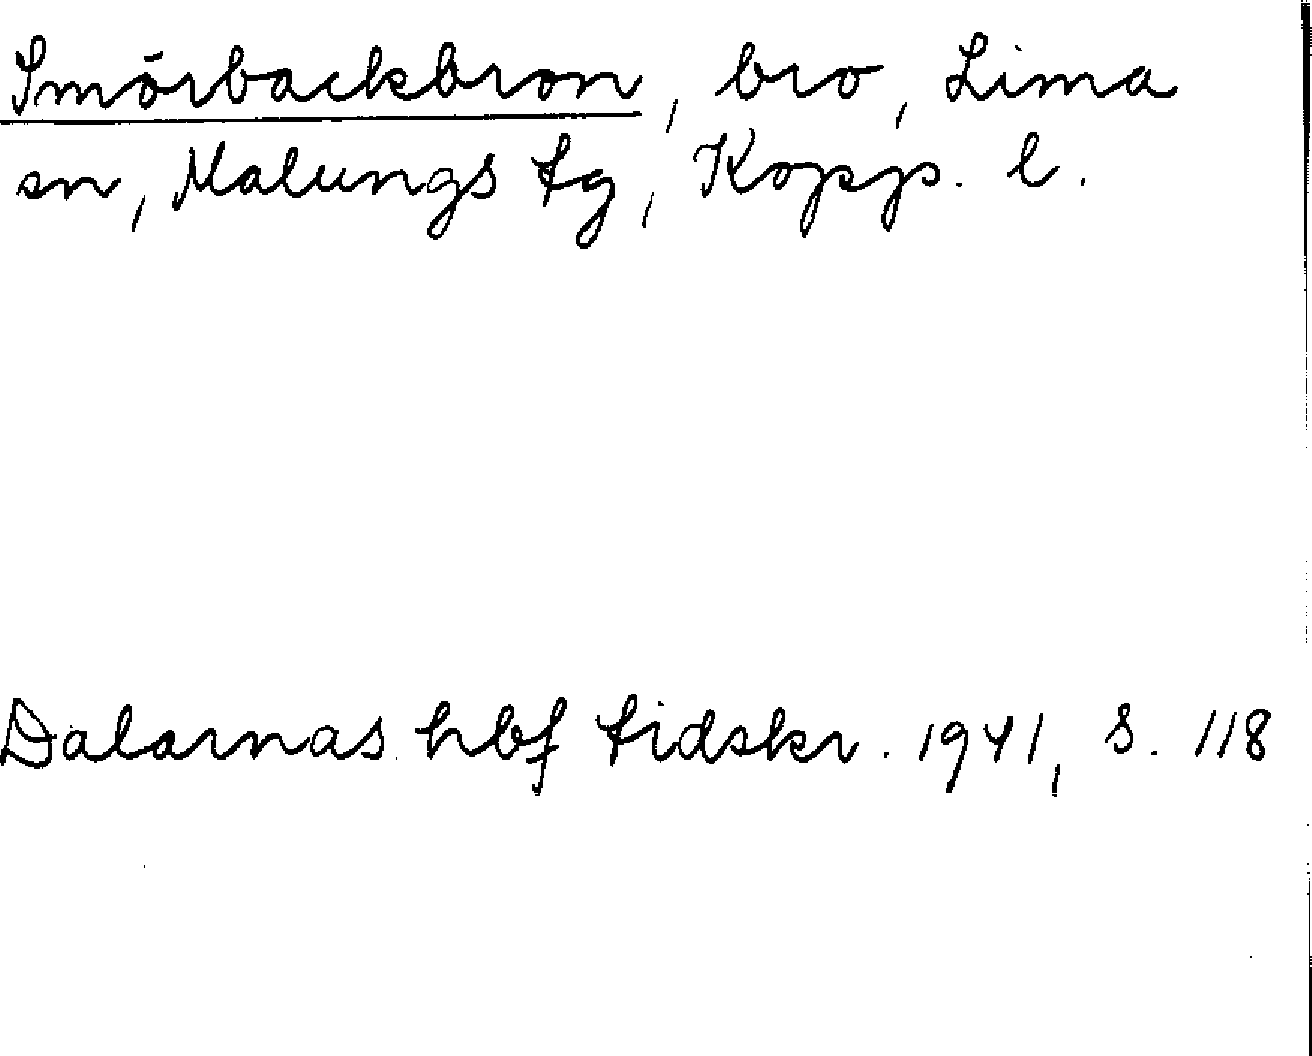 Smörbackbron, bro, Lima
sn, Malungs tg, Kopp. l.
Dalarnas hbf tidskr. 1941, s. 118